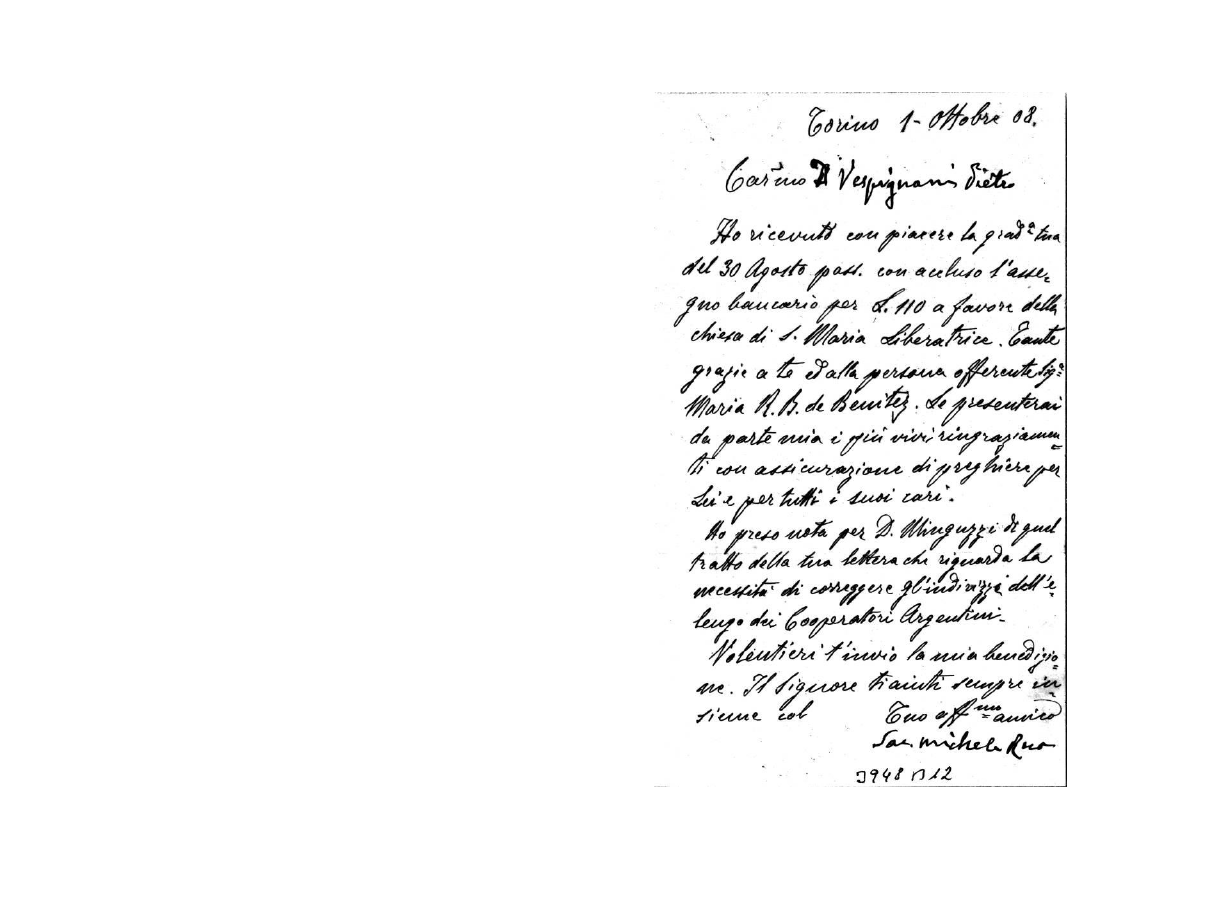 Torino 1- Ottobre 08.
Car.mo D Vespignani Pietro
Ho ricevuto con piacere la grad.a tua
del 30 Agosto pass. con accluso l'asse-
gno bancario per L. 110 a favore della
chiesa di S. Maria Liberatrice. Tante
grazie a te ed alla persona offerente Sig.a
Maria R. B. de Benitez. Le presenterai
da parte mia i più vivi ringraziamen=
ti con assicurazione di preghiere per
Lei e per tutti i suoi cari.
Ho preso nota per D. Minguzzi di quel
tratto della tua lettera che riguarda la
necessità di correggere gl'indirizzi dell'e-
lengo dei Cooperatori Argentini.
Volentieri t'invio la mia benedizio=
ne. Il Signore ti aiuti sempre in-
sieme col Tuo aff.mo amico
Sac. Michele Rua
3948 B 12